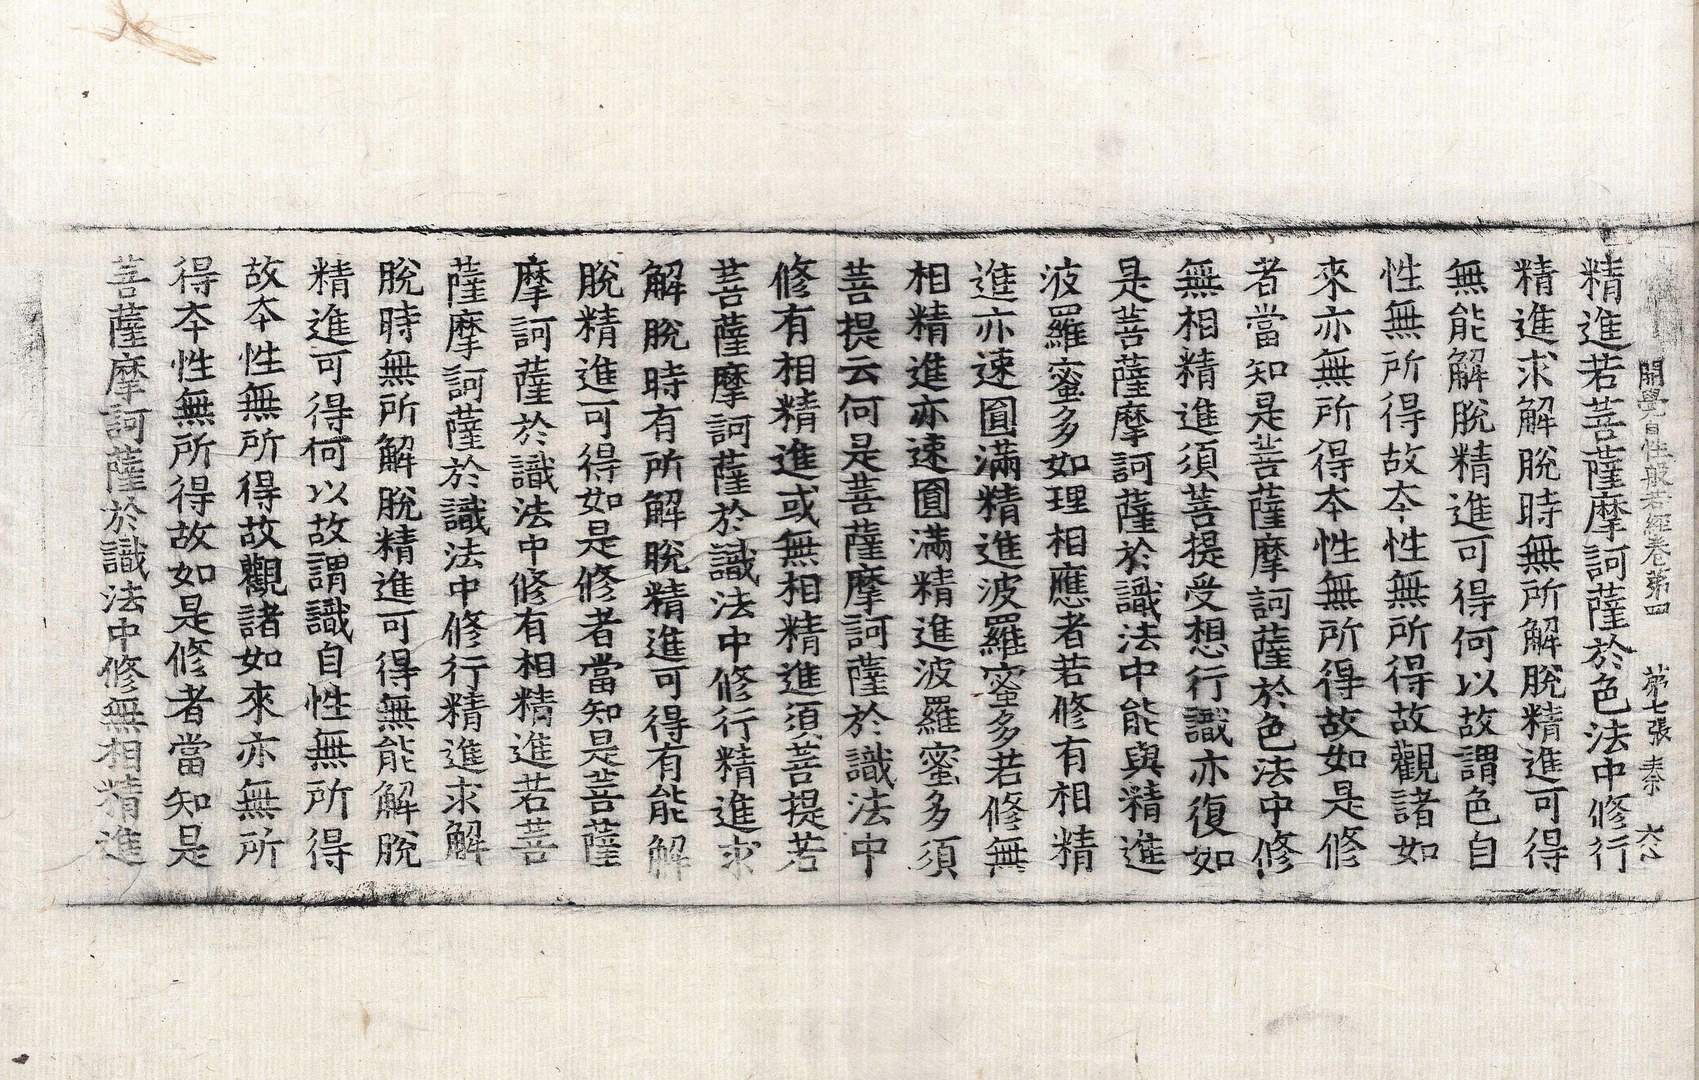 開覺自性般若經卷第四　第七張　㭍　六心
精進若菩薩摩訶薩於色法中修行
精進求解脫時無所解脫精進可得
無能解脫精進可得何以故謂色自
性無所得故本性無所得故觀諸如
來亦無所得本性無所得故如是修
者當知是菩薩摩訶薩於色法中修
無相精進須菩提受想行識亦復如
是菩薩摩訶薩於識法中能與精進
波羅蜜多如理相應者若修有相精
進亦速圓滿精進波羅蜜多若修無
相精進亦速圓滿精進波羅蜜多須
菩提云何是菩薩摩訶薩於識法中
修有相精進或無相精進須菩提若
菩薩摩訶薩於識法中修行精進求
解脫時有所解脫精進可得有能解
脫精進可得如是修者當知是菩薩
摩訶薩於識法中修有相精進若菩
薩摩訶薩於識法中修行精進求解
脫時無所解脫精進可得無能解脫
精進可得何以故謂識自性無所得
故本性無所得故觀諸如來亦無所
得本性無所得故如是修者當知是
菩薩摩訶薩於識法中修無相精進